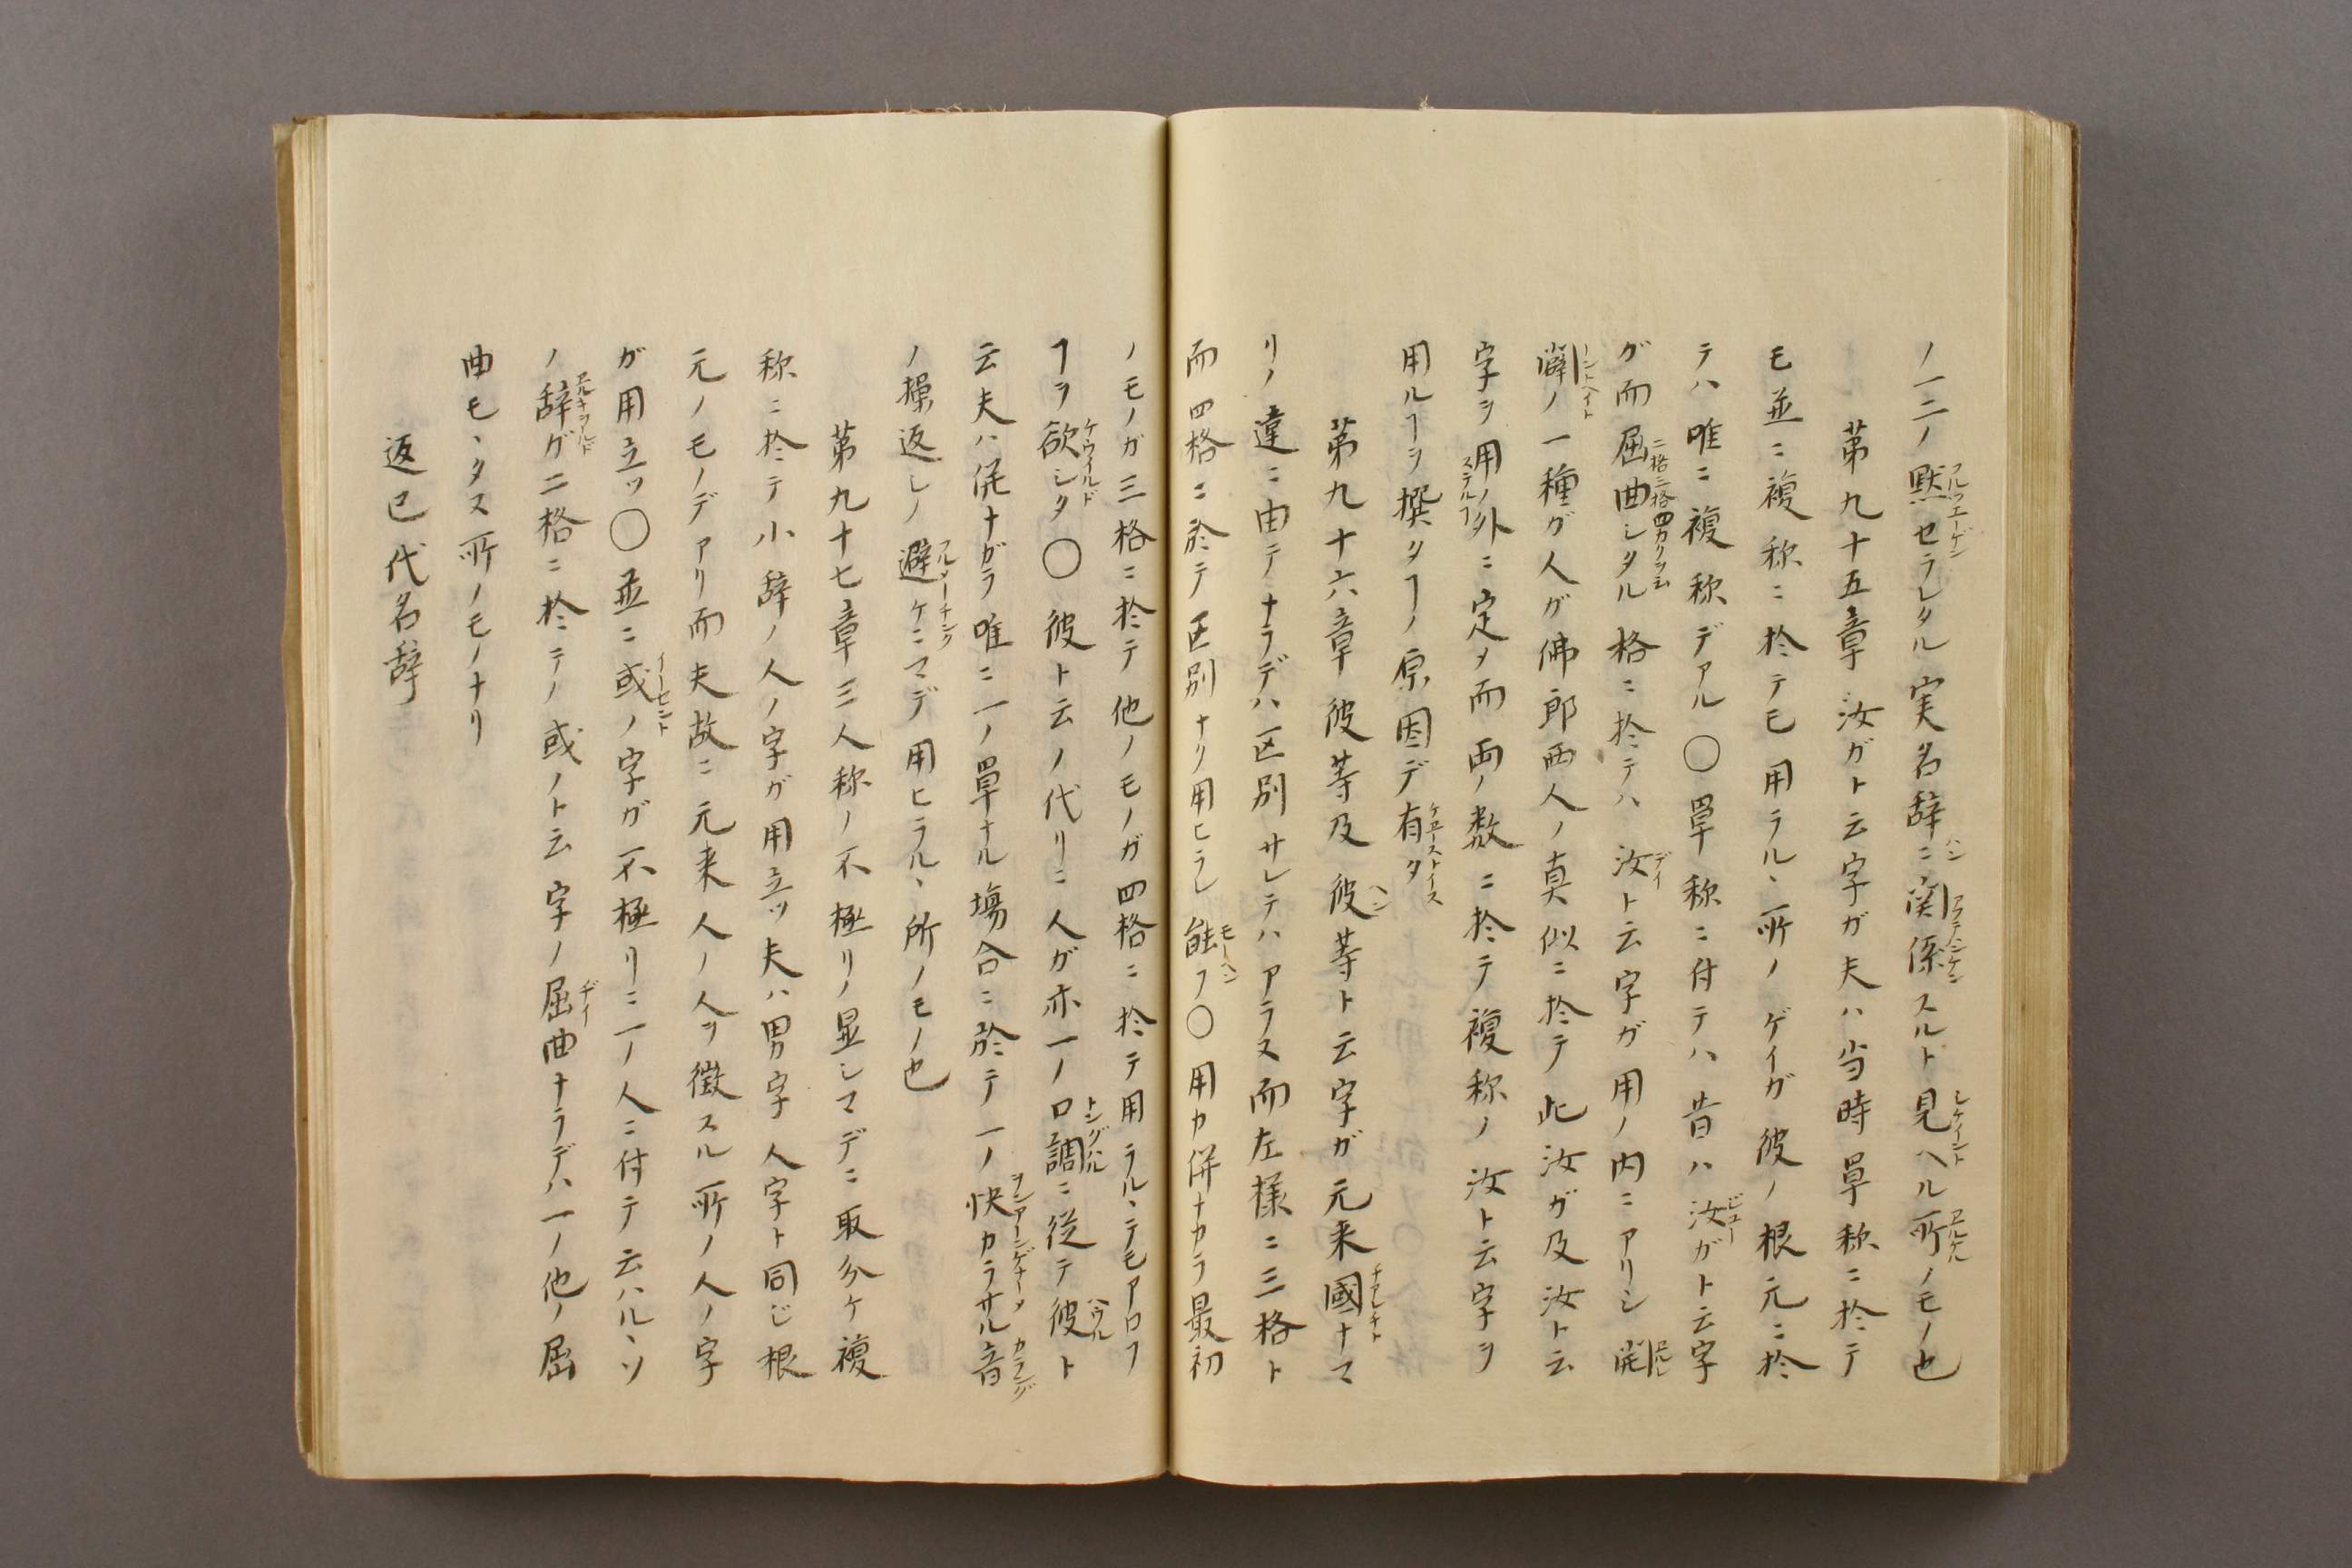 ノ一二ノ黙セラレタル実名辞ニ関係スルト見ヘル所ノモノ也
フルツエーゲン
ハン
シケイント
第九十五章 汝ガト云字ガ夫ハ当時単称ニ於テ
モ並ニ複称ニ於テモ用ラル丶所ノゲイガ彼ノ根元ニ於
テハ唯ニ複称デアル〇単称ニ付テハ昔ハ汝ガト云字
ビユー
ガ而屈曲シタル格ニ於テハ汝ト云字ガ用ノ内ニアリシ
デイ
ノ一種ガ人ガ佛郎西人ノ真似ニ於テ此汝ガ及汝ト云
ントヘイト
字ヲ用ノ外ニ定メ而両ノ数ニ於テ複称ノ汝ト云字ヲ
ステルフ
用ルヿヲ撰タヿノ原因デ有タ
第九十六章 彼等及彼等ト云字ガ元来國ナマ
ヘン
リノ違ニ由テナラデハ区別サレテハアラヌ而左様ニ三格ト
而四格ニ於テ区別ナク用ヒラレ能フ〇用カ併ナカラ最初
モーヘン
ノモノガ三格ニ於テ他ノモノガ四格ニ於テ用ラル丶テモアロフ
ヿヲ欲シタ〇彼ト云ノ代リニ人ガ亦一ノ口調ニ従テ彼ト
ケウイルド
トングハル
ハウル
云夫ハ併ナガラ唯ニ一ノ單ナル場合ニ於テ一ノ快カラサル音
カラング
ノ操返しノ避ケニマデ用ヒラル丶所ノモノ也
フルメーチング
第九十七章 三人称ノ不極リノ显シマデニ取分ケ複
称ニ於テ小辞ノ人ノ字ガ用立ツ夫ハ男字人字ト同じ根
元ノモノデアリ而夫故ニ元来人ノ人ヲ徴スル所ノ人ノ字
ガ用立ツ〇並ニ或ノ字ガ不極リニ一ノ人ニ付テ云ハル丶ソ
イーヒント
ノ辞ガ二格ニ於テノ或ノト云字ノ屈曲ナラデハ一ノ他ノ屈
曲モ丶タヌ所ノモノナリ
返已代名辞